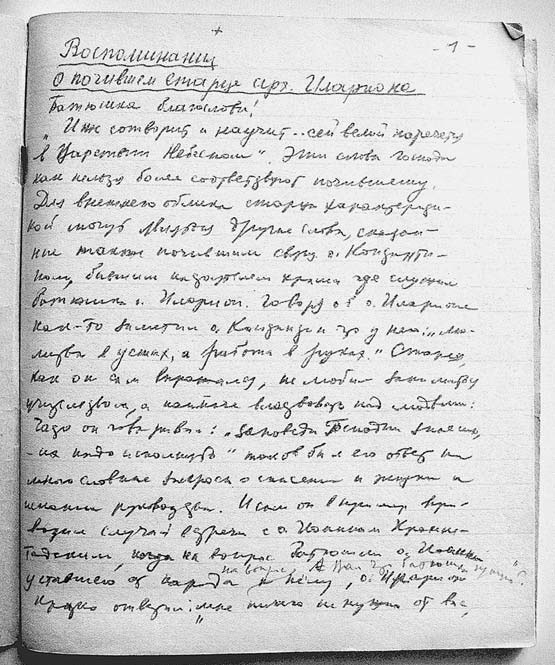 - 1 -
Воспоминания
о почившем старце арх. Иларионе
Батюшка благослови!
„Иже сотворит и научит.. сей велий наречется
в Царствии Небесном". Эти слова Господа
как нельзя более соответствуют почившему.
Для внешнего облика старца характеристи-
кой могут явиться другие слова, сказан-
ные также почившим о. Константи-
ном, бывшим настоятелем храма где служил
батюшка о. Иларион. Говоря об о. Иларионе
как-то заметил о. Константин что у него: „мо-
литва в устах, а работа в руках." Старец,
как он сам выражался, не любил заниматься
учительством, а наипаче властвовать над людьми:
Часто он говаривал: „заповеди Господни знаешь,
их надо исполнять" таков был его ответ на
многословные вопросы о спасении и жизни и
искании руководства. И сам он в пример при-
водил случай встречи с о. Иоанном Кронш-
тадским, когда на вопрос батюшки о. Иоанна
уставшего от народа к нему, о. Иларион
на вопрос, А Вам что батюшка нужно"?
кратко ответил: „мне ничего не нужно от вас,